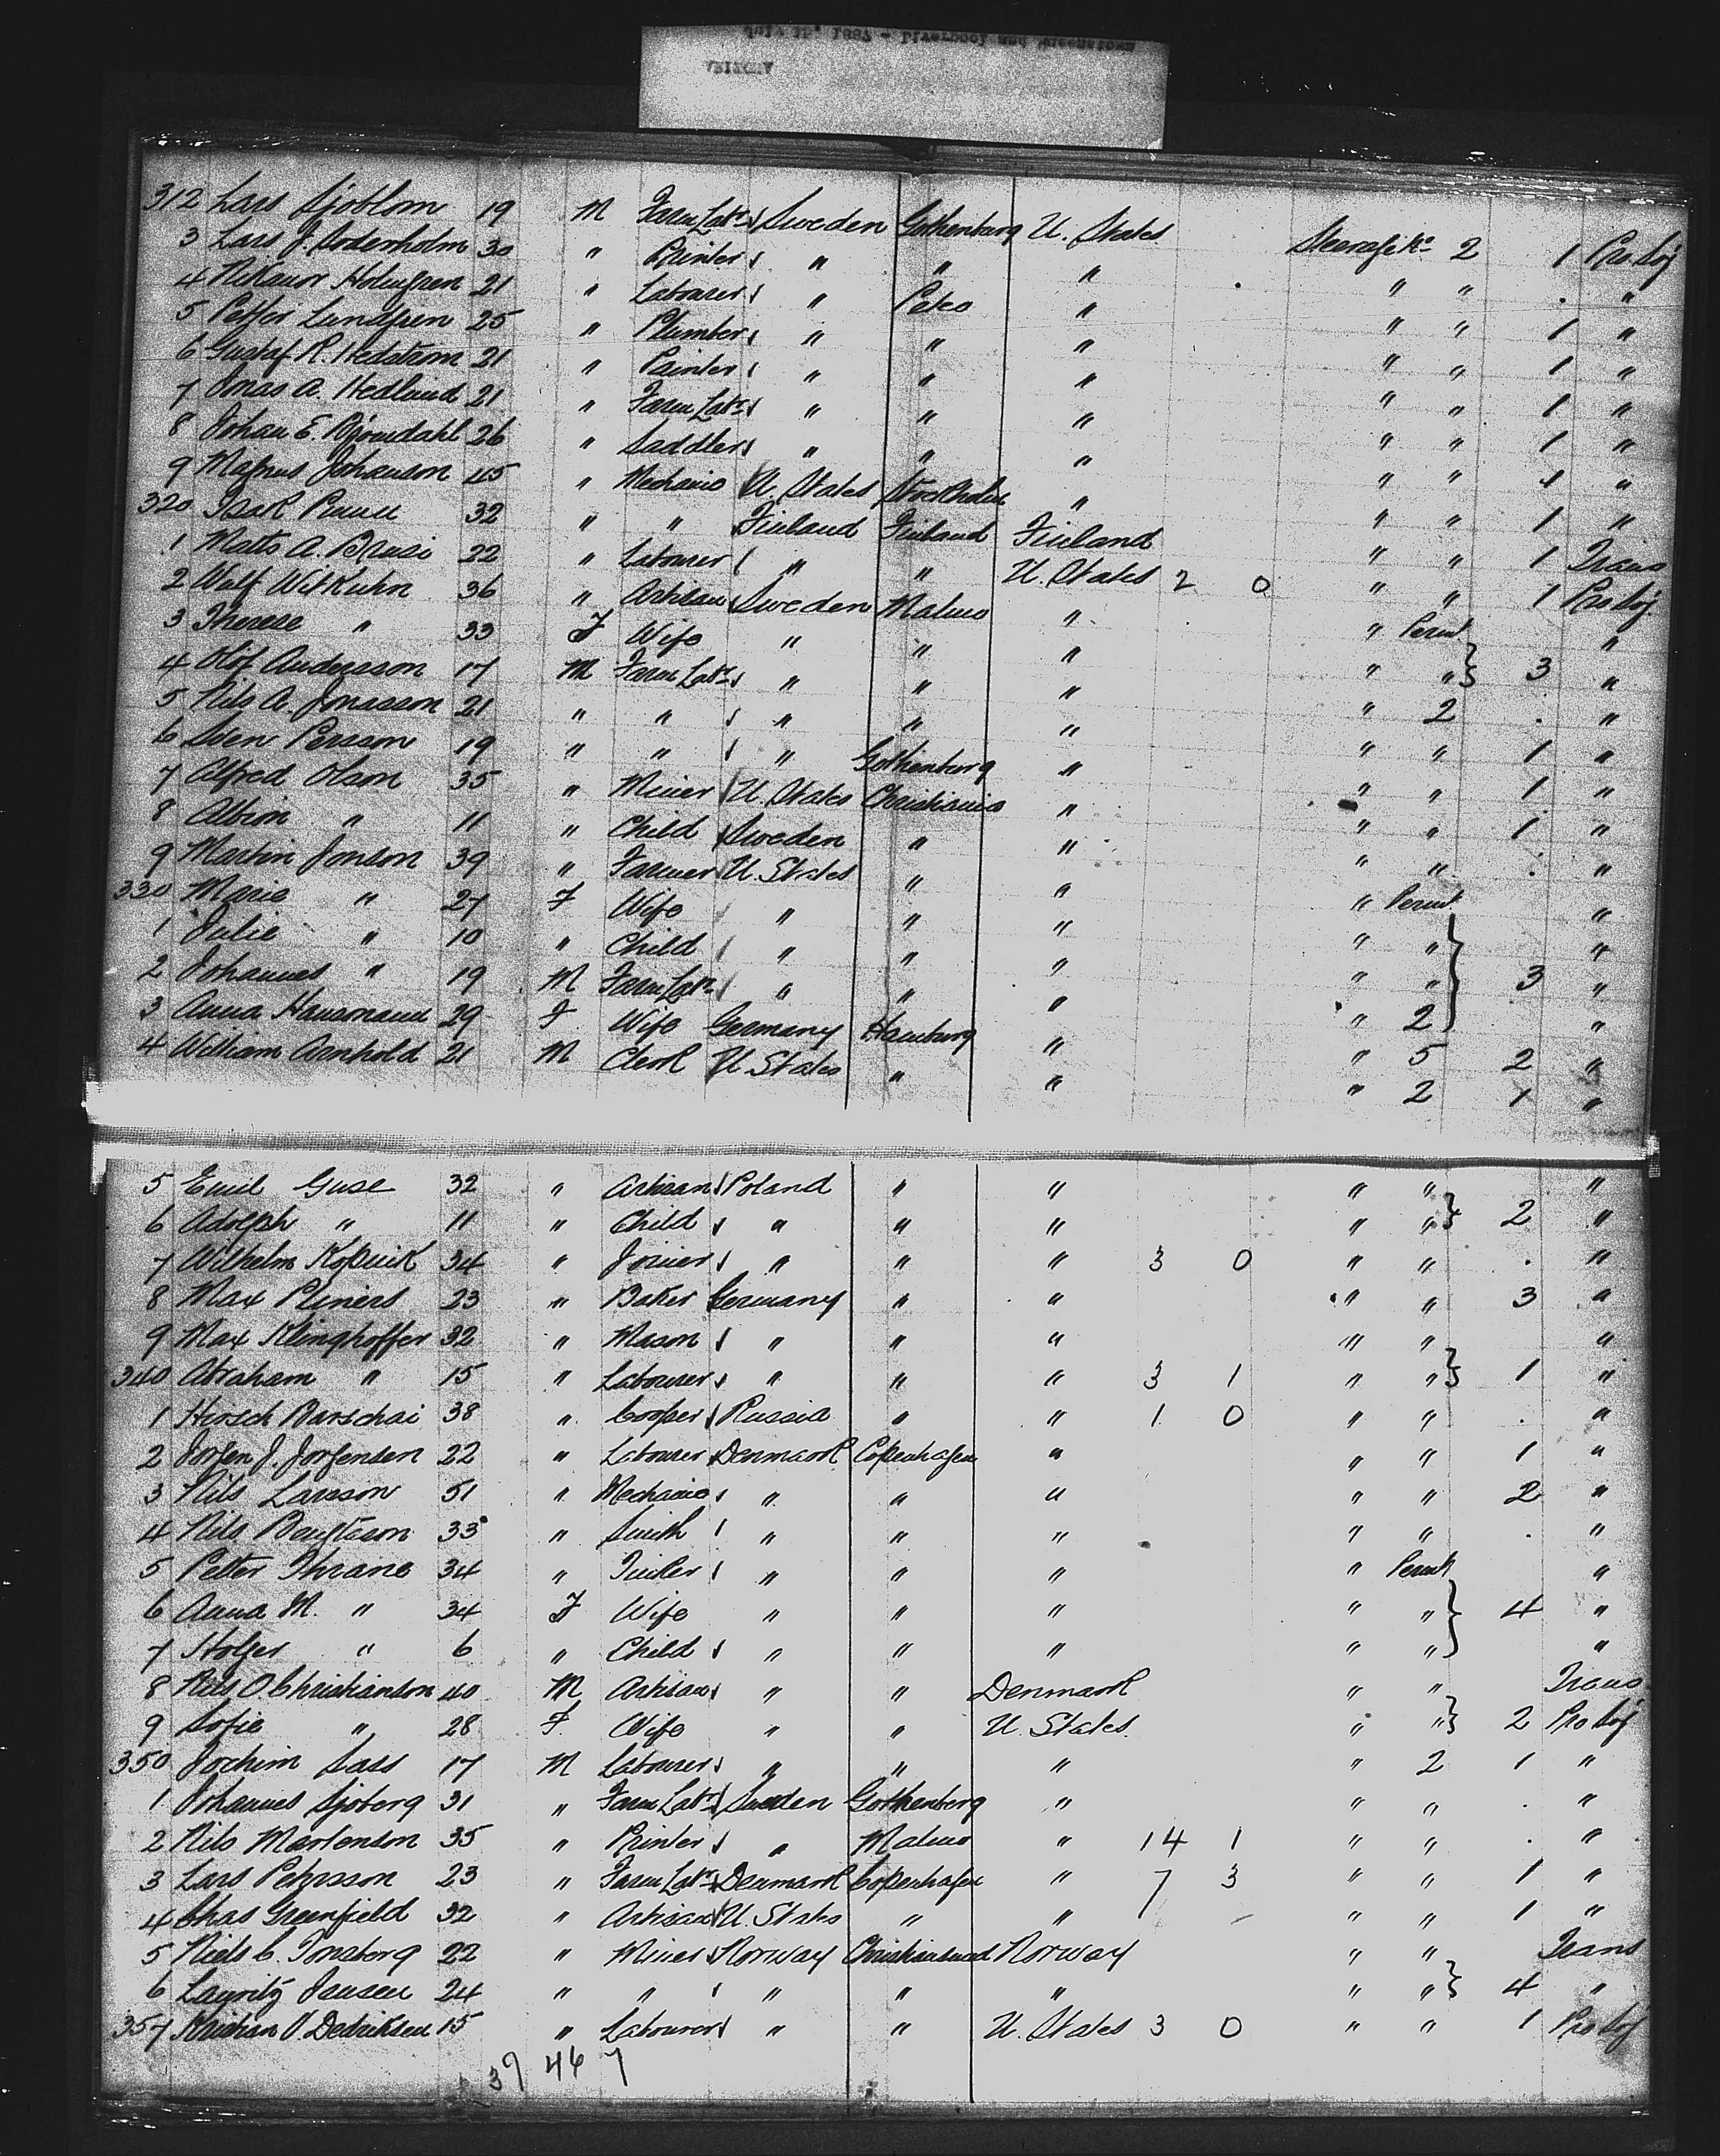 July 12, 1887 - Liverpool and Queenstown
ARIZONA
312 Lars Sjoblom 19 M Farm Labr Sweden Gothenburg U. States Steerage No 2 1 Pro Soj
3 Lars J. Soderholm 30 " Printer " " " " " . "
4 Nikanor Holmgren 21 " Labourer " Piteo " " " 1 "
5 Petter Lundgren 25 " Plumber " " " " " 1 "
6 Gustaf R. Hedstrom 21 " Painter " " " " " 1 "
7 Jonas A. Hedlund 21 " Farm Labr " " " " " 1 "
8 Johan E. Bjorndahl 26 " Saddler " " " " " 1 "
9 Magnus Johanson 45 " Mechanic U. States Stockholm " " " 1 "
320 Isak 32 " " Finland Finland Finland " " 1 Trans
1 Matts A. 22 " Labourer " " U. States 2 0 " " 1 Pro Soj
2 Wulf Witkuhn 36 " Artisan Sweden Malmo " " Permt "
3 Therese " 33 F Wife " " " " " } 3 "
4 Olof Andersson 17 M Farm Labr " " " " 2 . "
5 Nils A. Jonasson 21 " " " " " " " 1 "
6 Sven Persson 19 " " " Gothenburg " " " 1 "
7 Alfred Olson 35 " Miner U. States Christiania " " " 1 "
8 Albion " 11 " Child Sweden " " " " . "
9 Martin Jonson 39 " Farmer U. States " " " Permt "
330 Marie " 27 F Wife " " " " " "
1 Julie " 10 " Child " " " " " } 3 "
2 Johannes " 19 M Farm Labr " " " " 2 "
3 Anna 29 F Wife Germany Hamburg " " 5 2 "
4 William Arnhold 21 M Clerk U. States " " " 2 1 "
5 Emil Guse 32 " Artisan Poland " " " " "
6 Adolph " 11 " Child " " " " " } 2 "
7 Wilhelm Kopnik 34 " Joiner " " " 3 0 " " . "
8 Max 23 " Baker Germany " " " " 3 "
9 Max Klinghoffer 32 " Mason " " " " " "
340 Abraham " 15 " Labourer " " " 3 1 " " } 1 "
1 Hirsch Barschai 38 " Cooper Russia " " 1 0 " " . "
2 Jorgen J. Jorgensen 22 " Labourer Denmark Copenhagen " " " 1 "
3 Nils Larsson 51 " Mechanic " " " " " 2 "
4 Nils Bengtsson 33 " Smith " " " " " . "
5 Petter Thrane 34 " Tinker " " " " Permt "
6 Anna M. " 34 F Wife " " " " " } 4 "
7 Holger " 6 " Child " " " " " "
8 Nils O. Christianson 40 M Artisan " " Denmark " " Trans
9 Sofie " 28 F. Wife " " U. States. " " } 2 Pro Soj
350 Jochim Sass 17 M Labourer " " " " 2 1 "
1 Johannes Sjoberg 31 " Farm Labr Sweden Gothenberg " " " . "
2 Nils Martenson 35 " Printer " Malmo " 14 1 " " . "
3 Lars Pehrsson 23 " Farm Labr Denmark Copenhagen " 7 3 " " 1 "
4 Chas Greenfield 32 " Artisan U. States " " " " 1 "
5 Niels C. Tonsberg 22 " Miner Norway Christiansand Norway " " Trans
6 Lauritz Jansen 24 " " " " " " " } 4 "
357 Kristian O. Dedriksen 15 " Labourer " " U. States 3 0 " " 1 Pro Soj
39 46 7